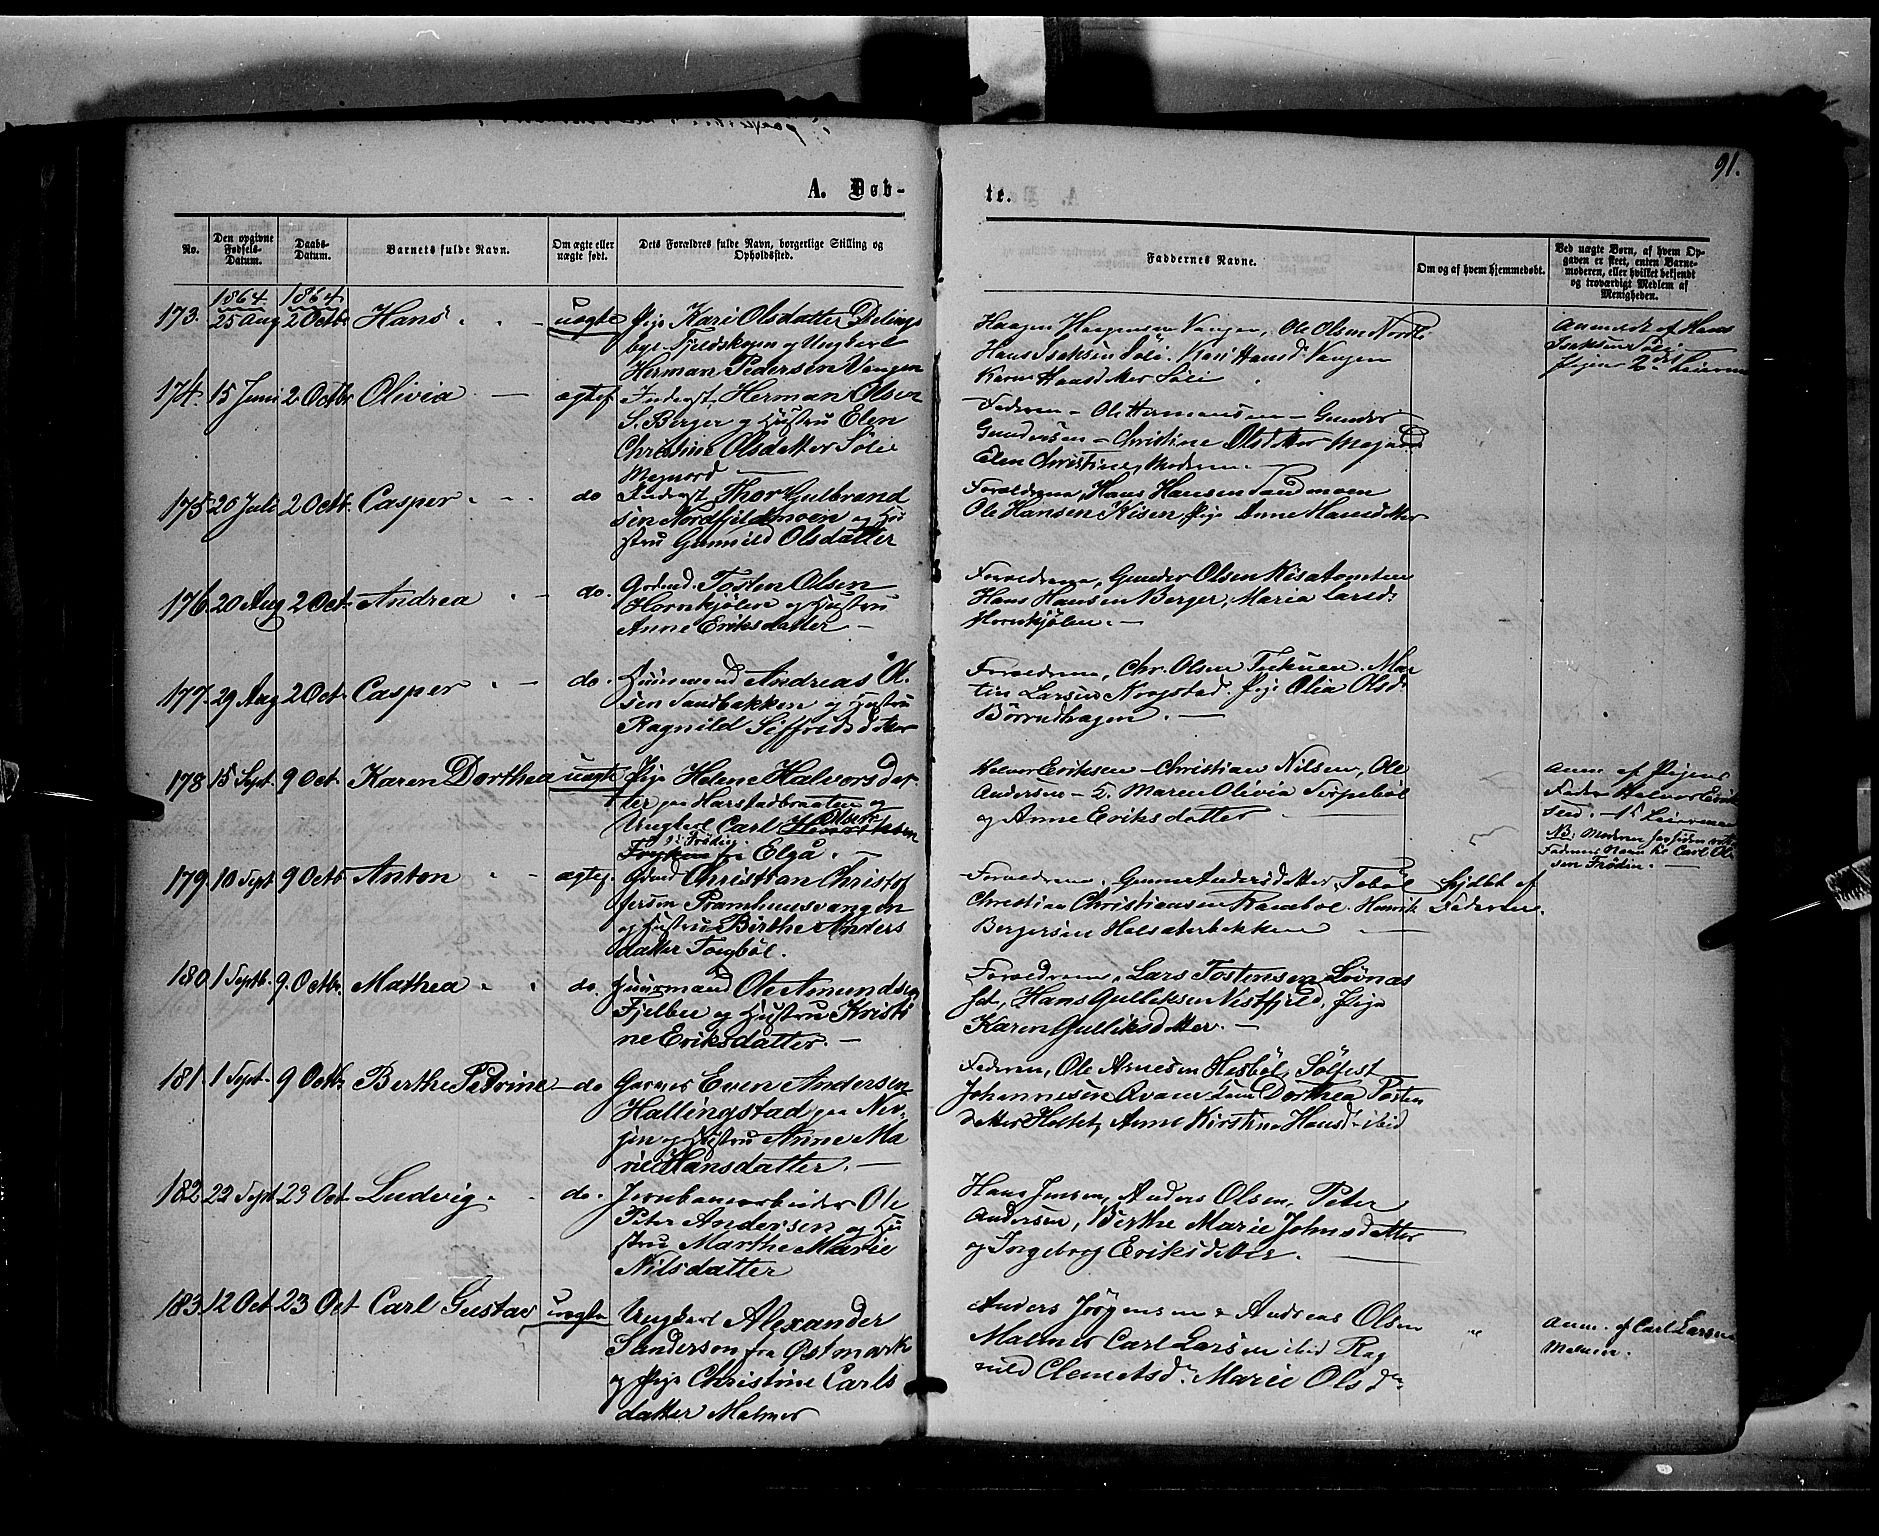 91.
A. Døb-
te.
No.
Den opgivne
Fødsels-
Datum.
Daabs-
Datum.
Barnets fulde Navn.
Om ægte eller
uægte født.
Dets Forældres fulde Navn, borgerlige Stilling og
Opholdssted.
Faddernes Navne.
Om og af hvem hjemmedøbt.
Ved uægte Børn, af hvem Op-
gaven er skeet, enten Barne-
moderen, eller hvilket bekjendt
og troværdigt Medlem af
Menigheden.
1864. 1864.
173. 25 Aug 2 Octbr Hans
uægte
Pige Kari Olsdatter
og Ungkarl
Herman Pedersen Vangen
Haagen Haagensen Vangen, Ole Olsen
Hans Isaksen Sølie. Kari Hansd. Vangen
Karen Hansdatter Sølie
Anmeldt af Hans
Isaksen Sølie
Pigens 2det
174. 15 Juni 2 Octbr Olivia
ægtef.
Inderst, Herman Olsen
S. Berger og Hustru Elen
Christine Olsdatter Sølie
Mognord
Faderen – Ole Hermansen – Gunder
Gundersen – Christine Olsdatter
Elen Christine, Moderen.
175. 20 Juli 2 Octbr. Casper
do
Inderst Thor Gulbrand
sen Nordfjeldmoen og Hu
stru Gunnild Olsdatter
Forældrene, Hans Hansen Sandmoen
Ole Hansen Kisen Pige Anne Hansdatter
176. 20 Aug 2 Oct. Andrea
do.
Gdmd. Tosten Olsen
Hornkjølen og Hustru
Anne Eriksdatter –
Forældrene, Gunder Olsen
Hans Hansen Berger, Maria Larsd.
Hornkjølen. –
177. 29 Aug 2 Oct. Casper
do.
Huusmand Andreas Ol
sen Sandbakken og Hustru
Ragnild Siffridsdatter
Forældrene, Chr. Olsen. Mar
tin Larsen Nogstad. Pige Olia Olsd.
Børrudhagen. –
178 15 Sept. 9 Oct. Karen Dorthea
uægte
Pige Helene Halvorsdat
ter paa Harstadbraaten og
Ungkarl Carl Olsen
fra Elgaa. –
Halvor Eriksen – Christian Nilsen, Ole
Andersen – Maren Olivia Torpebøl
og Anne Eriksdatter –
Anm. af Pigens
Fader Halvor Erik
sen. –
Faderens Navn Carl Ol
sen Trödin. –
179. 10 Sept 9 Octb Anton
ægtef.
Gdmd Christian Christof
fersen Prambuusvangen
og Hustru Birthe Anders
datter Tongbøl.
Forældrene. Gunne Andersdatter,
Christian Christiansen. Henrik
Bergersen
Hjdbt af
Faderen.
180. 1 Septb. 9. Octbr. Mathea
do.
Huusmand Ole Amundsen
Fjelbu og Hustru Kristi
ne Eriksdatter. –
Forældrene, Lars Tostensen Lövnæs
set, Hans Gulliksen Nestfjeld, Pige
Karen Gulliksdatter. –
181. 1 Sept. 9 Octbr Berthe Petrine
do
Garver Even Andersen
Hallingstad paa
og Hustru Anne Ma
rie Hansdatter. –
Faderen, Ole Arnesen Hesbøl, Sølfest
Johannesen Dorthea Tosten
datter Holtet, Anne Kirstine Hansd. ibid
182 22 Sept. 23 Oct Ludvig
do.
Jernbanearbeider Ole
Peter Andersen og Hu
stru Marthe Marie
Nilsdatter
Hans Jensen, Anders Olsen, Peter
Andersen, Berthe Marie Johnsdatter
og Ingeborg Eriksdatter. –
183. 12 Oct. 23 Oct Carl Gustav
uægte
Ungkarl Alexander
Sanderson fra Østmark
og Pige Christine Carls
datter Malmer
Anders Jørgensen & Andreas Olsen
Malmer Carl Larsen ibid Rag
nild Clemetsdr. Marie Olsdr
"
Anm. af Carl Larsen
Malmer.